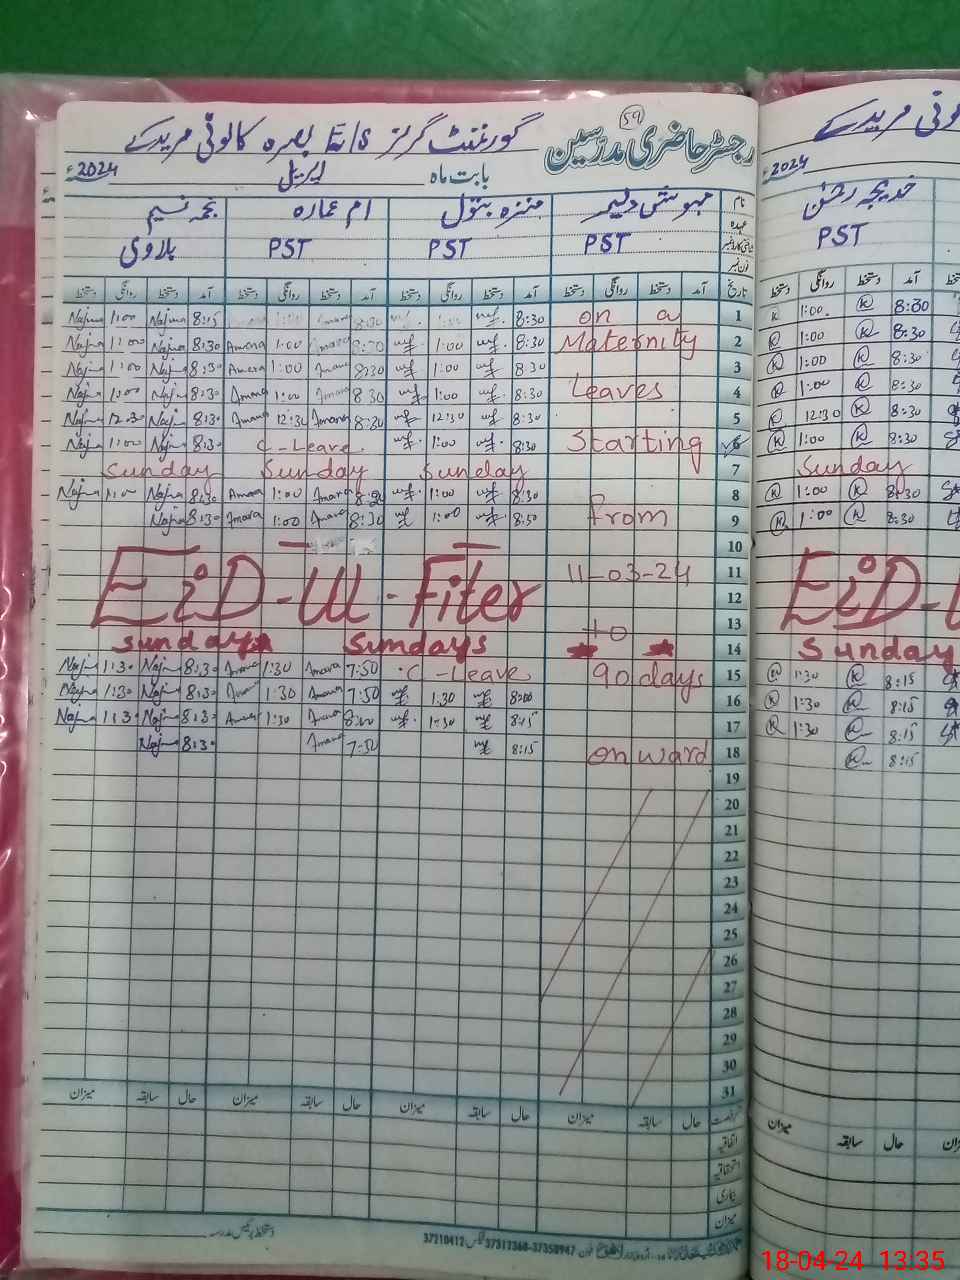 59
رجسٹر حاضری مدرسین
گورنمنٹ گرلز E/S بصرہ کالونی مریدکے
بابت ماہ اپریل 2024ء
نام مہوش دلبر منزہ بتول ام عمارہ نجمہ نسیم
عہدہ PST PST PST پلاوی
فون نمبر
تاریخ آمد دستخط روانگی دستخط آمد دستخط روانگی دستخط آمد دستخط روانگی دستخط آمد دستخط روانگی دستخط
Najma 1:00 Najma 8:15 1:00 Amara 8:30 1:00 8:30 on a 1
Najma 1:00 Najma 8:30 Amara 1:00 Amara 8:30 1:00 8:30 Maternity 2
Najma 1:00 Najma 8:30 Amara 1:00 Amara 8:30 1:00 8:30 3
Najma 1:00 Najma 8:30 Amara 1:00 Amara 8:30 1:00 8:30 Leaves 4
Najma 12:30 Najma 8:30 Amara 12:30 Amara 8:30 12:30 8:30 5
Najma 1:00 Najma 8:30 C-Leave 1:00 8:30 Starting 6
Sunday Sunday Sunday 7
Najma 1:00 Najma 8:30 Amara 1:00 Amara 8:30 1:00 8:30 8
Najma 8:30 Amara 1:00 Amara 8:30 1:00 8:30 from 9
10
EiD-Ul-Fiter 11-03-24 11
12
to 13
Sundays Sundays 14
Najma 1:30 Najma 8:30 Amara 1:30 Amara 7:50 C-Leave 90 days 15
Najma 1:30 Najma 8:30 Amara 1:30 Amara 7:50 1:30 8:00 16
Najma 1:30 Najma 8:30 Amara 1:30 Amara 8:00 1:30 8:15 17
Najma 8:30 Amara 7:50 8:15 onward 18
19
20
21
22
23
24
25
26
27
28
29
30
31
رخصت حال سابقہ میزان حال سابقہ میزان حال سابقہ میزان حال سابقہ میزان
اتفاقیہ
استحقاقیہ
بیماری
میزان
دستخط پرنسپل مدرسہ
37210412 37312368-37350947
2024ء
خدیجہ رحمٰن
PST
آمد دستخط روانگی دستخط
K 1:00 K 8:30
K 1:00 K 8:30
K 1:00 K 8:30
K 1:00 K 8:30
K 12:30 K 8:30
K 1:00 K 8:30
Sunday
K 1:00 K 8:30
K 1:00 K 8:30
EiD-U
Sunday
K 1:30 K 8:15
K 1:30 K 8:15
K 1:30 K 8:15
K 8:15
حال سابقہ میزان
18-04-24 13:35